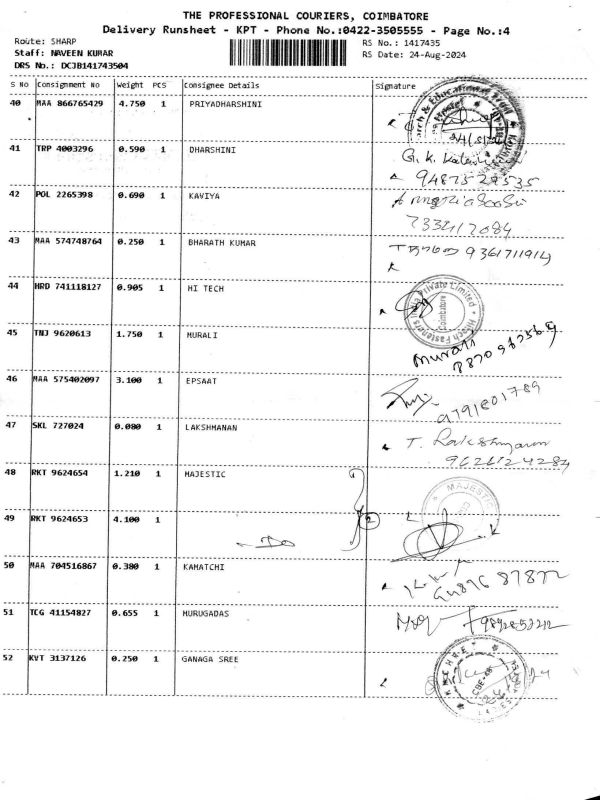 THE PROFESSIONAL COURIERS, COIMBATORE
Delivery Runsheet - KPT - Phone No.:0422-3505555 - Page No.:4
Route: SHARP
Staff: NAVEEN KUMAR
DRS No.: DCJB141743504
RS No.: 1417435
RS Date: 24-Aug-2024
S No Consignment No Weight PCS Consignee Details Signature
40 MAA 866765429 4.750 1 PRIYADHARSHINI
41 TRP 4003296 0.590 1 DHARSHINI
42 POL 2265398 0.690 1 KAVIYA
43 MAA 574748764 0.250 1 BHARATH KUMAR 9361711914
44 HRD 741118127 0.905 1 HI TECH
Hitech Fasteners India Private Limited
Coimbatore
45 TNJ 9620613 1.750 1 MURALI Murali
46 MAA 575402097 3.100 1 EPSAAT
9791601789
47 SKL 727024 0.080 1 LAKSHMANAN T. Lakshmanan
9626124284
48 RKT 9624654 1.210 1 MAJESTIC
MAJESTIC
49 RKT 9624653 4.100 1
2
50 MAA 704516867 0.380 1 KAMATCHI
51 TCG 41154827 0.655 1 MURUGADAS
52 KVT 3137126 0.250 1 GANAGA SREE